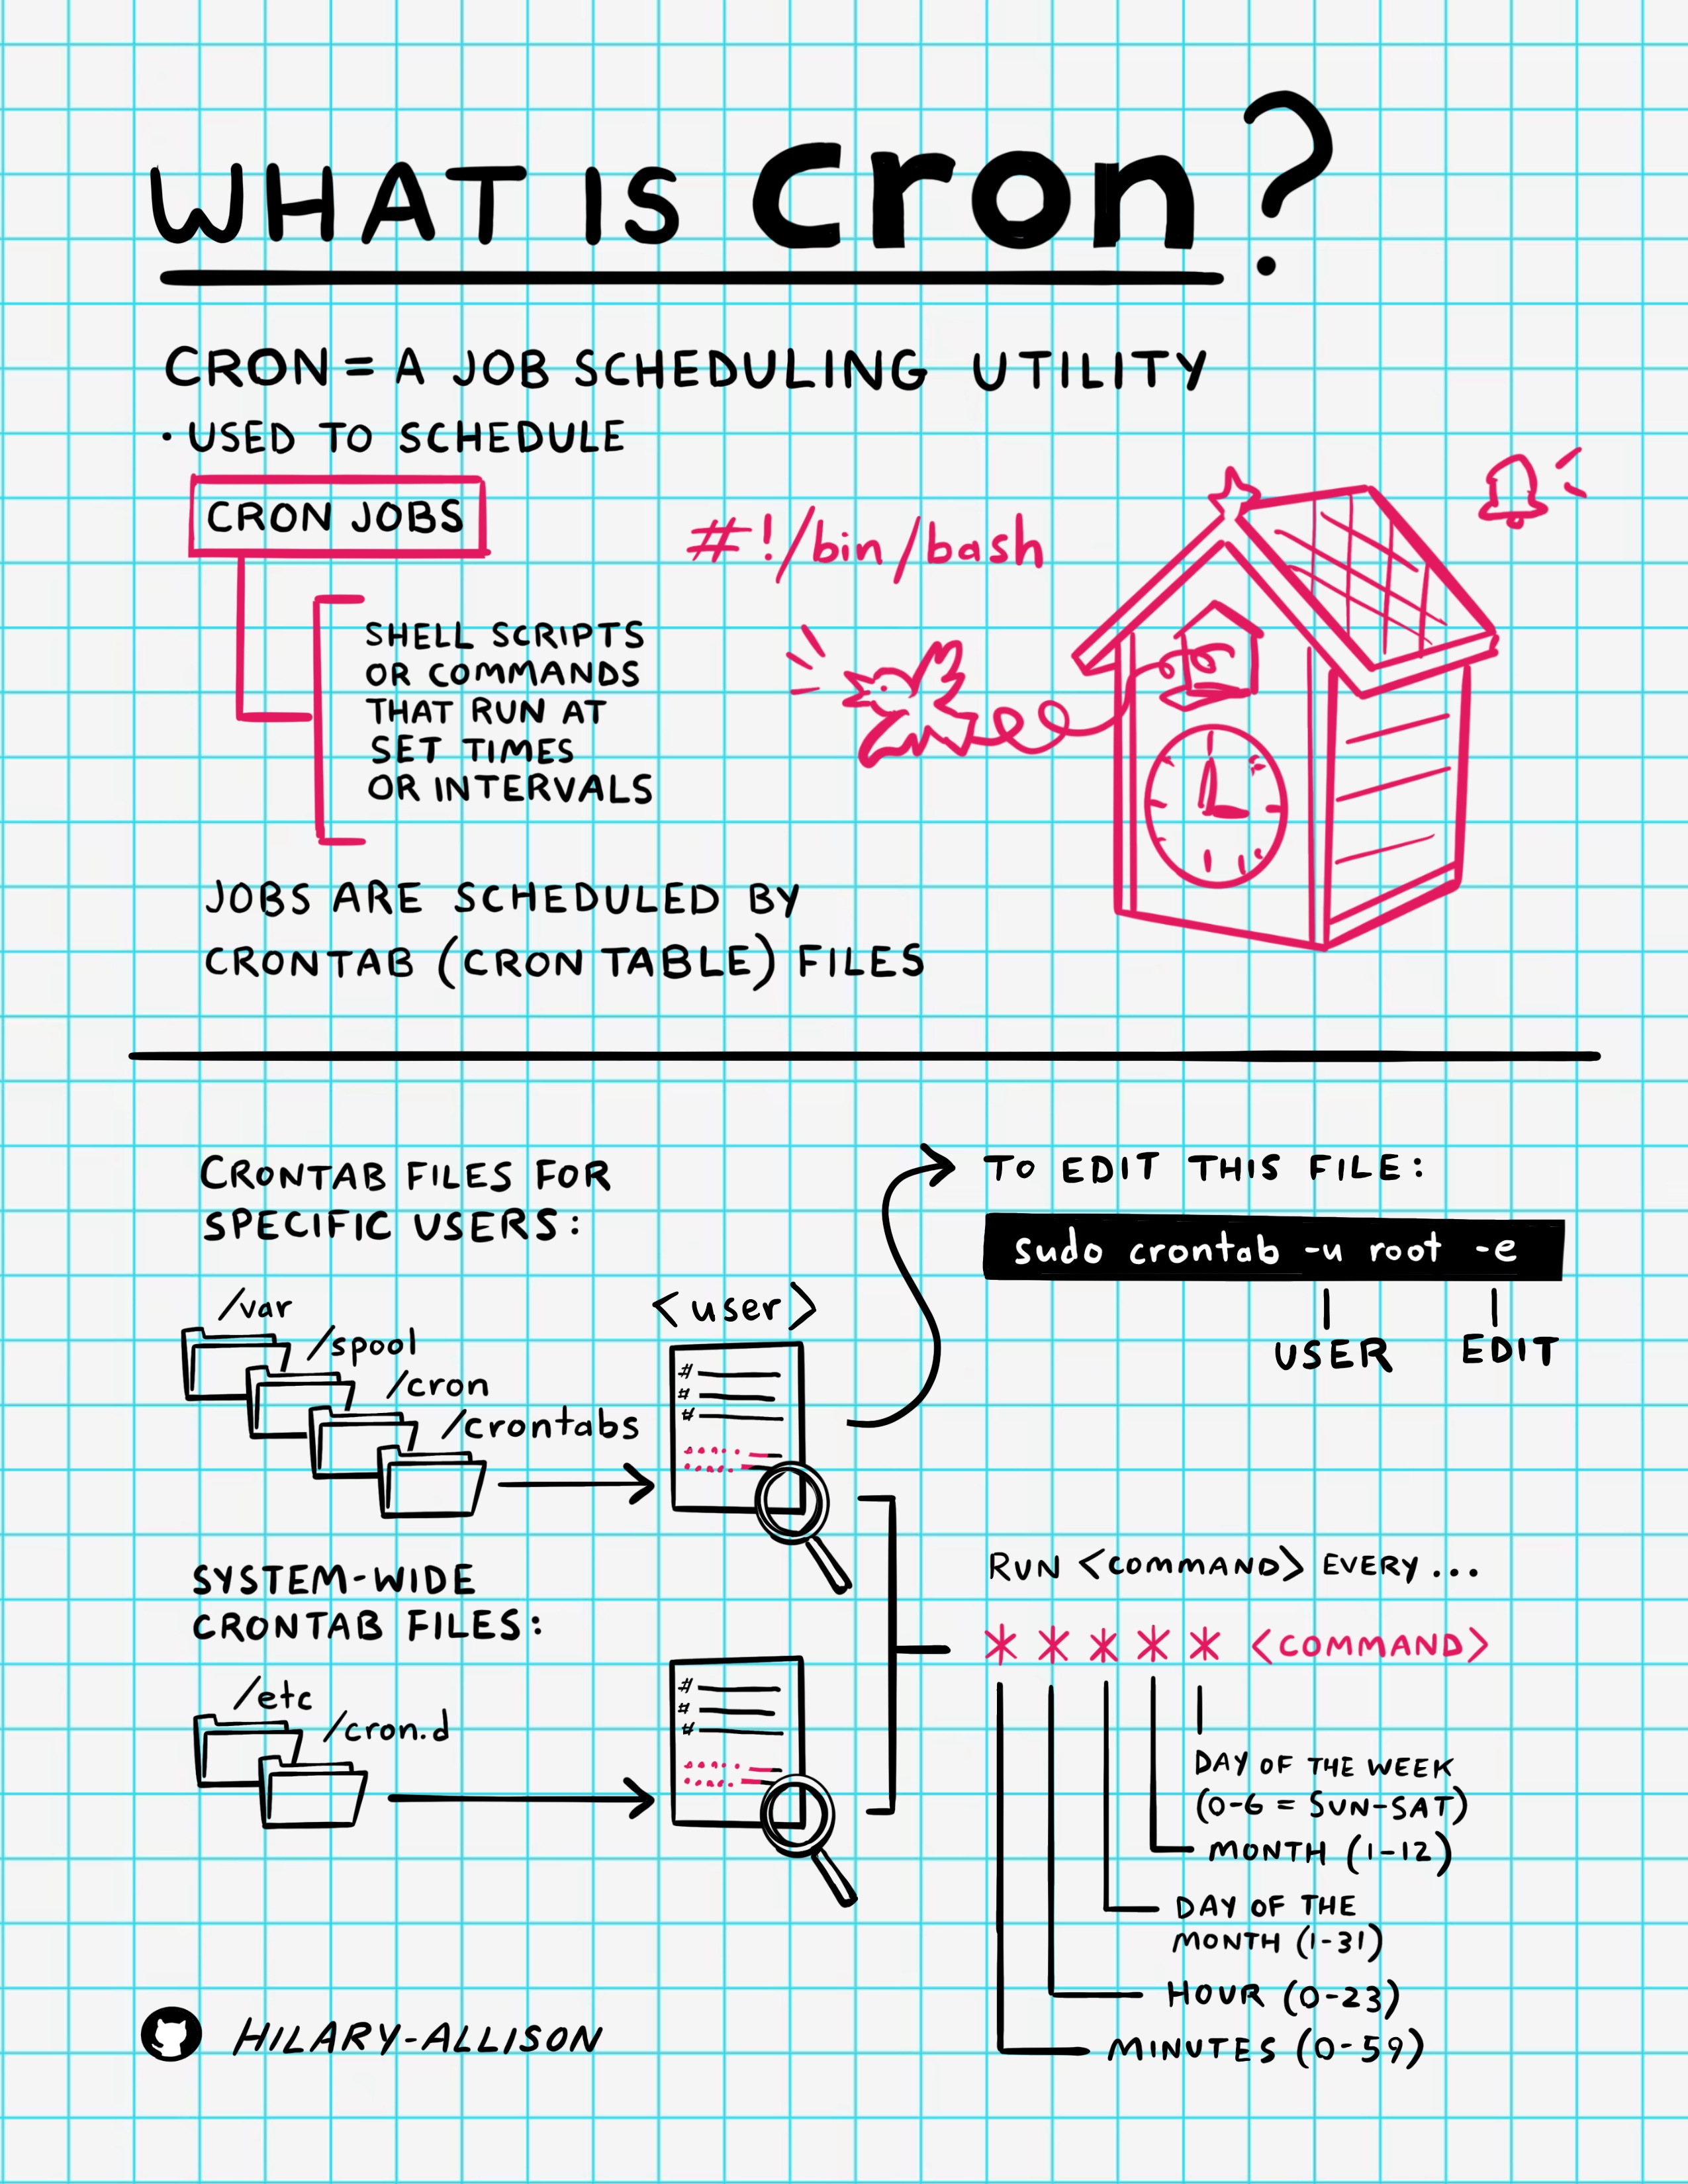 WHAT IS cron?
CRON = A JOB SCHEDULING UTILITY
• USED TO SCHEDULE
CRON JOBS
SHELL SCRIPTS
OR COMMANDS
THAT RUN AT
SET TIMES
OR INTERVALS
#!/bin/bash
JOBS ARE SCHEDULED BY
CRONTAB (CRON TABLE) FILES
CRONTAB FILES FOR
SPECIFIC USERS:
/var
/spool
/cron
/crontabs
<user>
#
#
#
TO EDIT THIS FILE:
sudo crontab -u root -e
USER EDIT
SYSTEM-WIDE
CRONTAB FILES:
/etc
/cron.d
#
#
#
RUN <COMMAND> EVERY...
* * * * * <COMMAND>
DAY OF THE WEEK
(0-6 = SUN-SAT)
MONTH (1-12)
DAY OF THE
MONTH (1-31)
HOUR (0-23)
MINUTES (0-59)
HILARY-ALLISON